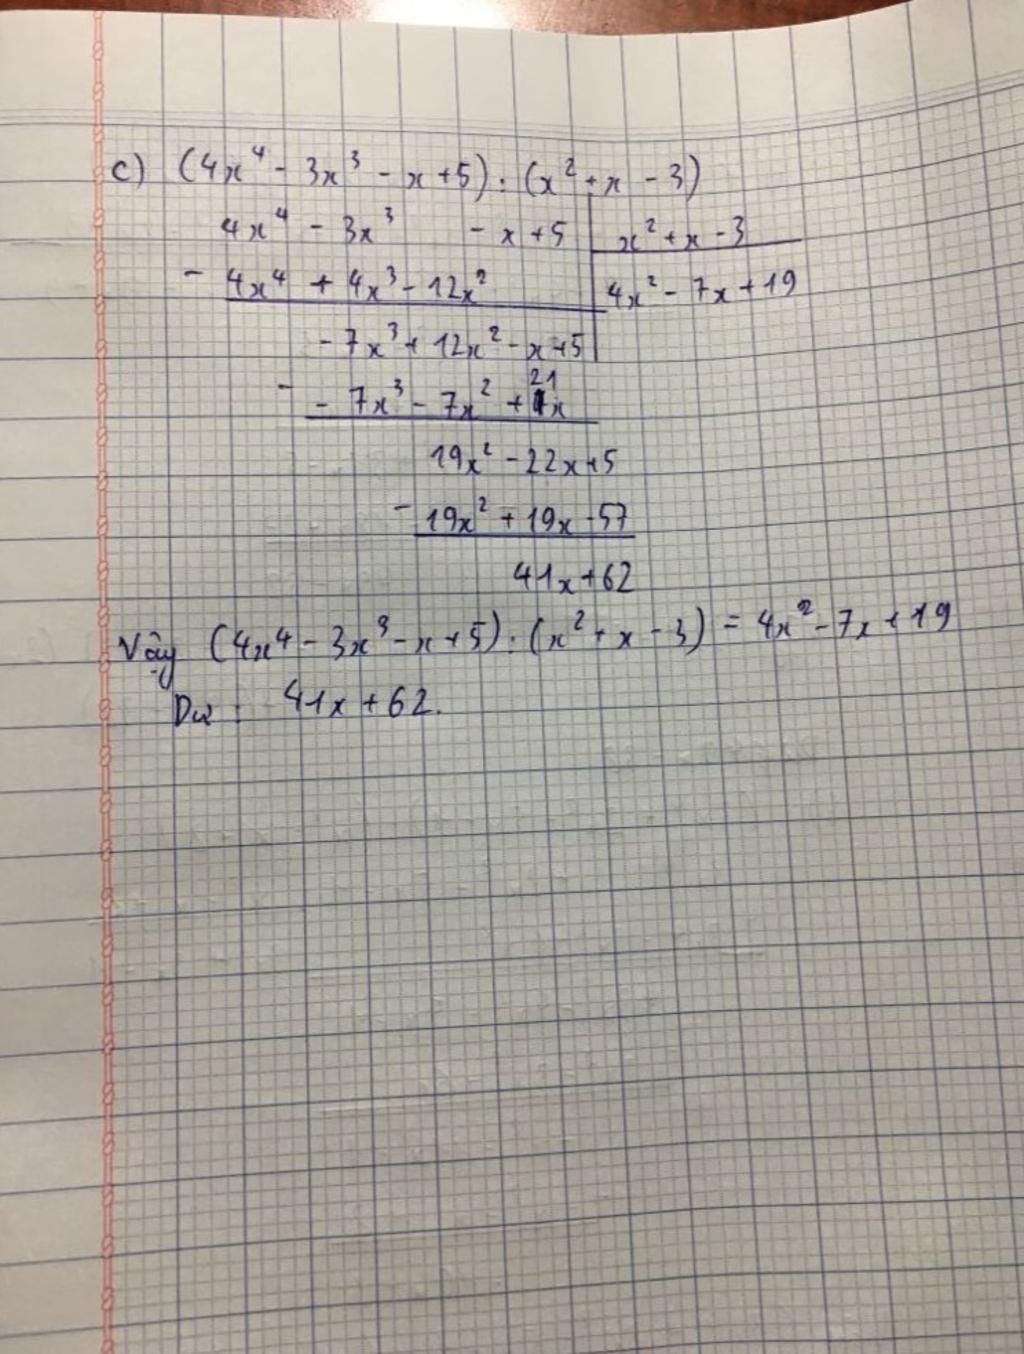 c) (4x⁴ - 3x³ - x + 5) : (x² + x - 3)
4x⁴ - 3x³ - x + 5 | x² + x - 3
- 4x⁴ + 4x³ - 12x² | 4x² - 7x + 19
- 7x³ + 12x² - x + 5
- - 7x³ - 7x² + 21x
19x² - 22x + 5
- 19x² + 19x - 57
- 41x + 62
Vậy (4x⁴ - 3x³ - x + 5) : (x² + x - 3) = 4x² - 7x + 19
Dư : 41x + 62.